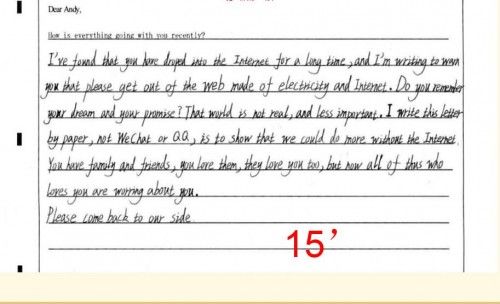 Dear Andy,
How is everything going with you recently?
I've found that you have droped into the Internet for a long time, and I'm writing to warn
you that please get out of the web made of electricity and Internet. Do you remember
your dream and your promise? That world is not real, and less important. I write this letter
by paper, not WeChat or QQ, is to show that we could do more without the Internet.
You have family and friends, you love them, they love you too, but now all of thus who
loves you are worring about you.
Please come back to our side
15'